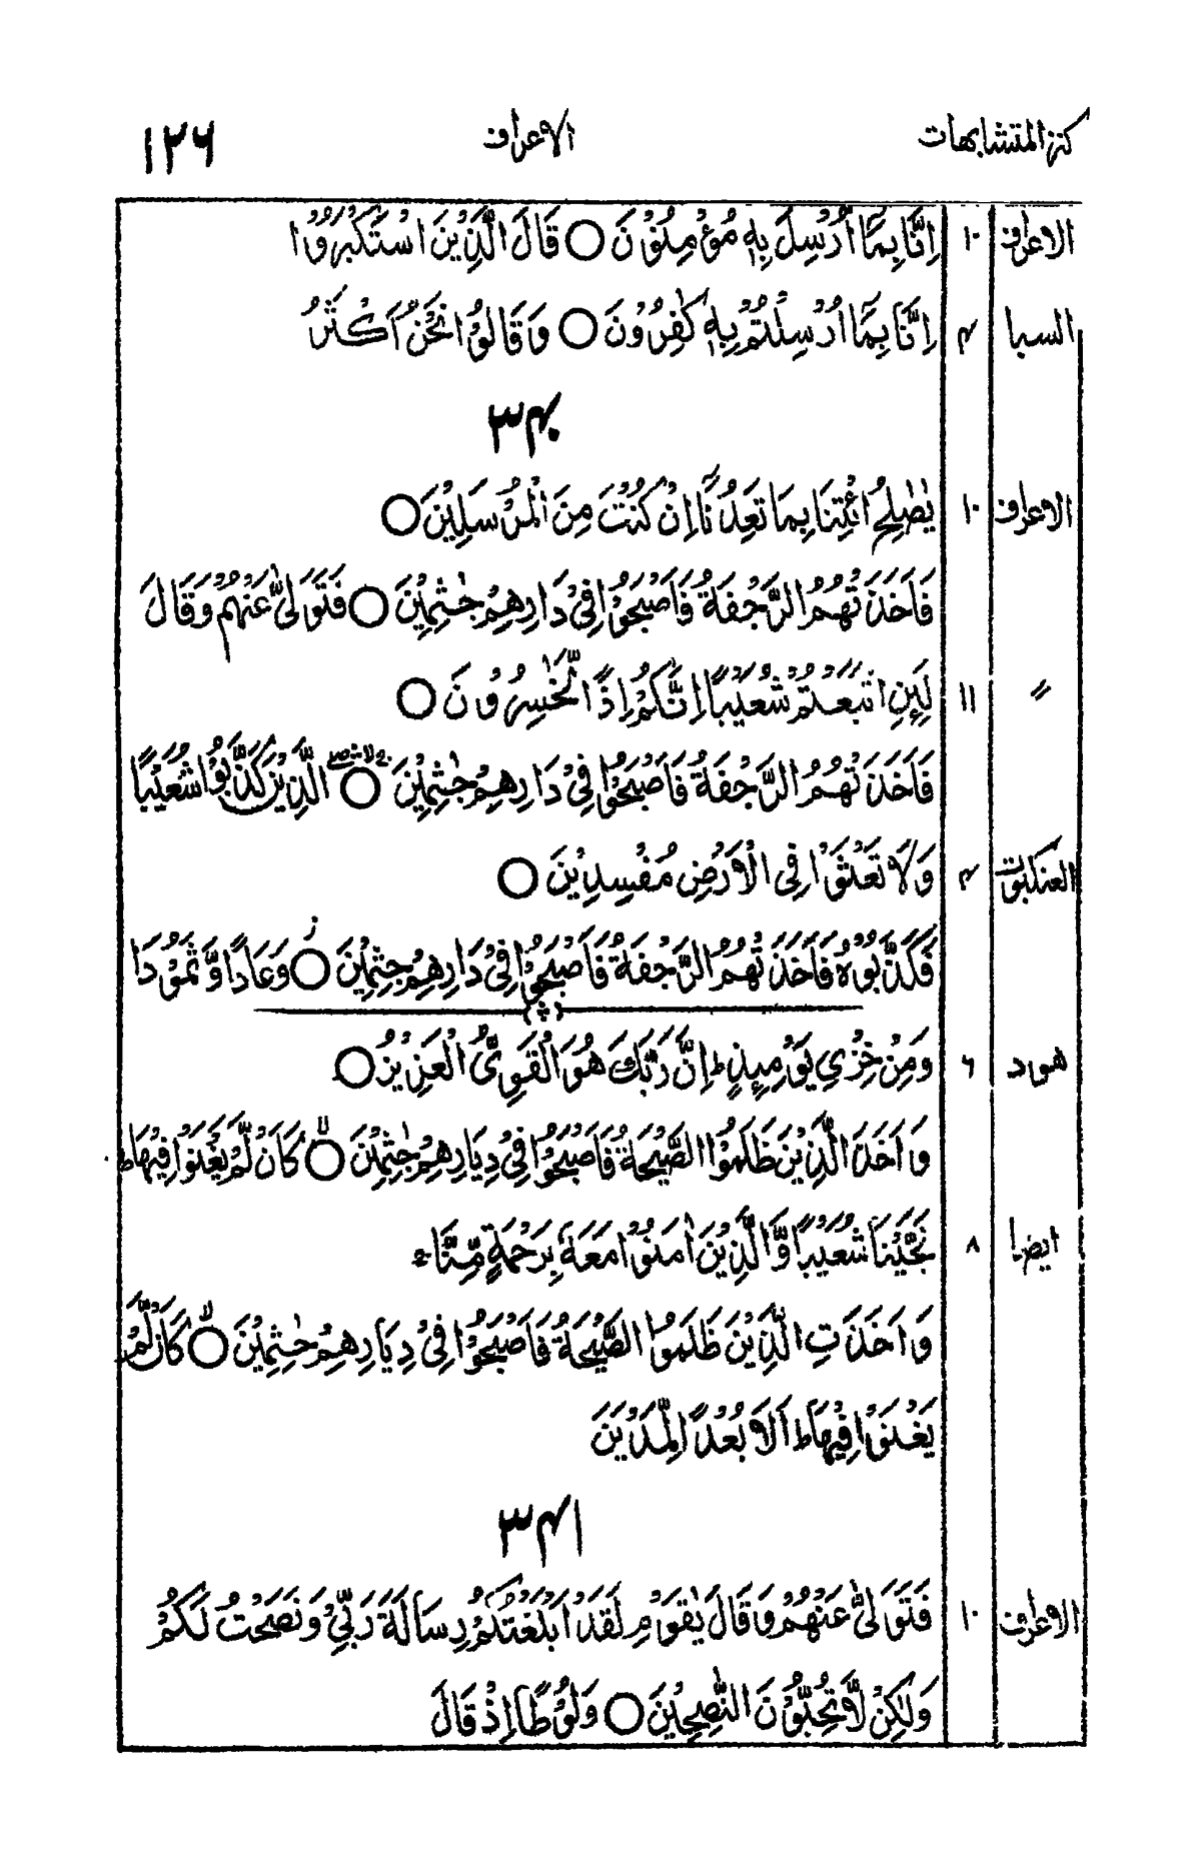 كنز المتشابهات الاعراف ١٢٦
الاعراف ١٠ اِنَّا بِمَآ اُرْسِلَ بِهٖ مُؤْمِنُوْنَ ○ قَالَ الَّذِيْنَ اسْتَكْبَرُوْٓا
السبا ۴ اِنَّا بِمَآ اُرْسِلْتُمْ بِهٖ كٰفِرُوْنَ ○ وَقَالُوْا نَحْنُ اَكْثَرُ
۳۴۰
الاعراف ١٠ يٰصٰلِحُ ائْتِنَا بِمَا تَعِدُنَآ اِنْ كُنْتَ مِنَ الْمُرْسَلِيْنَ ○
فَاَخَذَتْهُمُ الرَّجْفَةُ فَاَصْبَحُوْا فِيْ دَارِهِمْ جٰثِمِيْنَ ○ فَتَوَلّٰى عَنْهُمْ وَقَالَ
〃 ١١ لَئِنِ اتَّبَعْتُمْ شُعَيْبًا اِنَّكُمْ اِذًا لَّخٰسِرُوْنَ ○
فَاَخَذَتْهُمُ الرَّجْفَةُ فَاَصْبَحُوْا فِيْ دَارِهِمْ جٰثِمِيْنَ ○ الَّذِيْنَ كَذَّبُوْا شُعَيْبًا
العنكبوت ۴ وَلَا تَعْثَوْا فِى الْاَرْضِ مُفْسِدِيْنَ ○
فَكَذَّبُوْهُ فَاَخَذَتْهُمُ الرَّجْفَةُ فَاَصْبَحُوْا فِيْ دَارِهِمْ جٰثِمِيْنَ ○ وَعَادًا وَّثَمُوْدَا۟
هود ۶ وَمِنْ خِزْيِ يَوْمِئِذٍ ؕ اِنَّ رَبَّكَ هُوَ الْقَوِيُّ الْعَزِيْزُ ○
وَاَخَذَ الَّذِيْنَ ظَلَمُوا الصَّيْحَةُ فَاَصْبَحُوْا فِيْ دِيَارِهِمْ جٰثِمِيْنَ ○ كَاَنْ لَّمْ يَغْنَوْا فِيْهَا ؕ
ايضا ٨ نَجَّيْنَا شُعَيْبًا وَّالَّذِيْنَ اٰمَنُوْا مَعَهٗ بِرَحْمَةٍ مِّنَّا
وَاَخَذَتِ الَّذِيْنَ ظَلَمُوا الصَّيْحَةُ فَاَصْبَحُوْا فِيْ دِيَارِهِمْ جٰثِمِيْنَ ○ كَاَنْ لَّمْ
يَغْنَوْا فِيْهَا ؕ اَلَا بُعْدًا لِّمَدْيَنَ
۳۴۱
الاعراف ١٠ فَتَوَلّٰى عَنْهُمْ وَقَالَ يٰقَوْمِ لَقَدْ اَبْلَغْتُكُمْ رِسَالَةَ رَبِّيْ وَنَصَحْتُ لَكُمْ
وَلٰكِنْ لَّا تُحِبُّوْنَ النّٰصِحِيْنَ ○ وَلُوْطًا اِذْ قَالَ